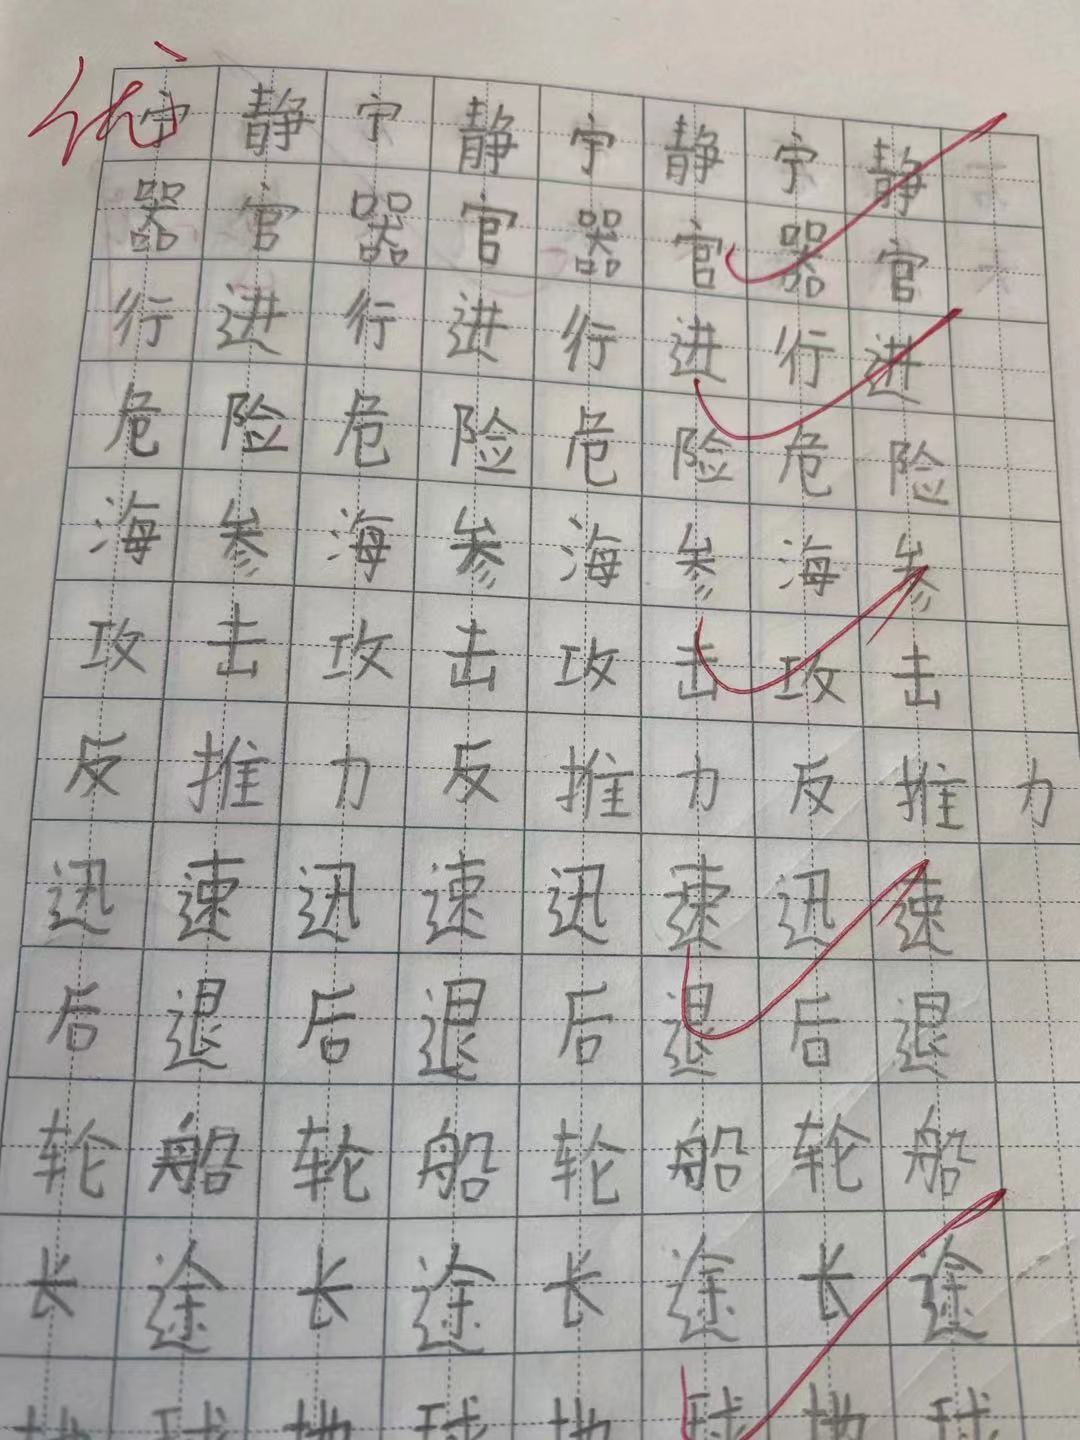 优
宁静宁静宁静宁静
器官器官器官器官
行进行进行进行进
危险危险危险危险
海参海参海参海参
攻击攻击攻击攻击
反推力反推力反推力
迅速迅速迅速迅速
后退后退后退后退
轮船轮船轮船轮船
长途长途长途长途
地球地球地球地球